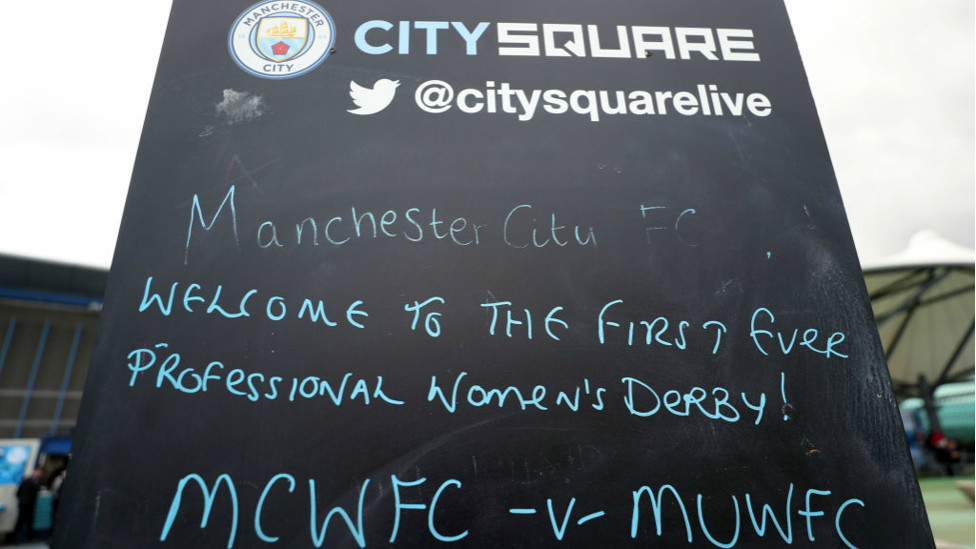 MANCHESTER
CITY
CITYSQUARE
@citysquarelive
Manchester City FC
WELCOME TO THE FIRST EVER
PROFESSIONAL WOMEN'S DERBY!
MCWFC -V- MUWFC